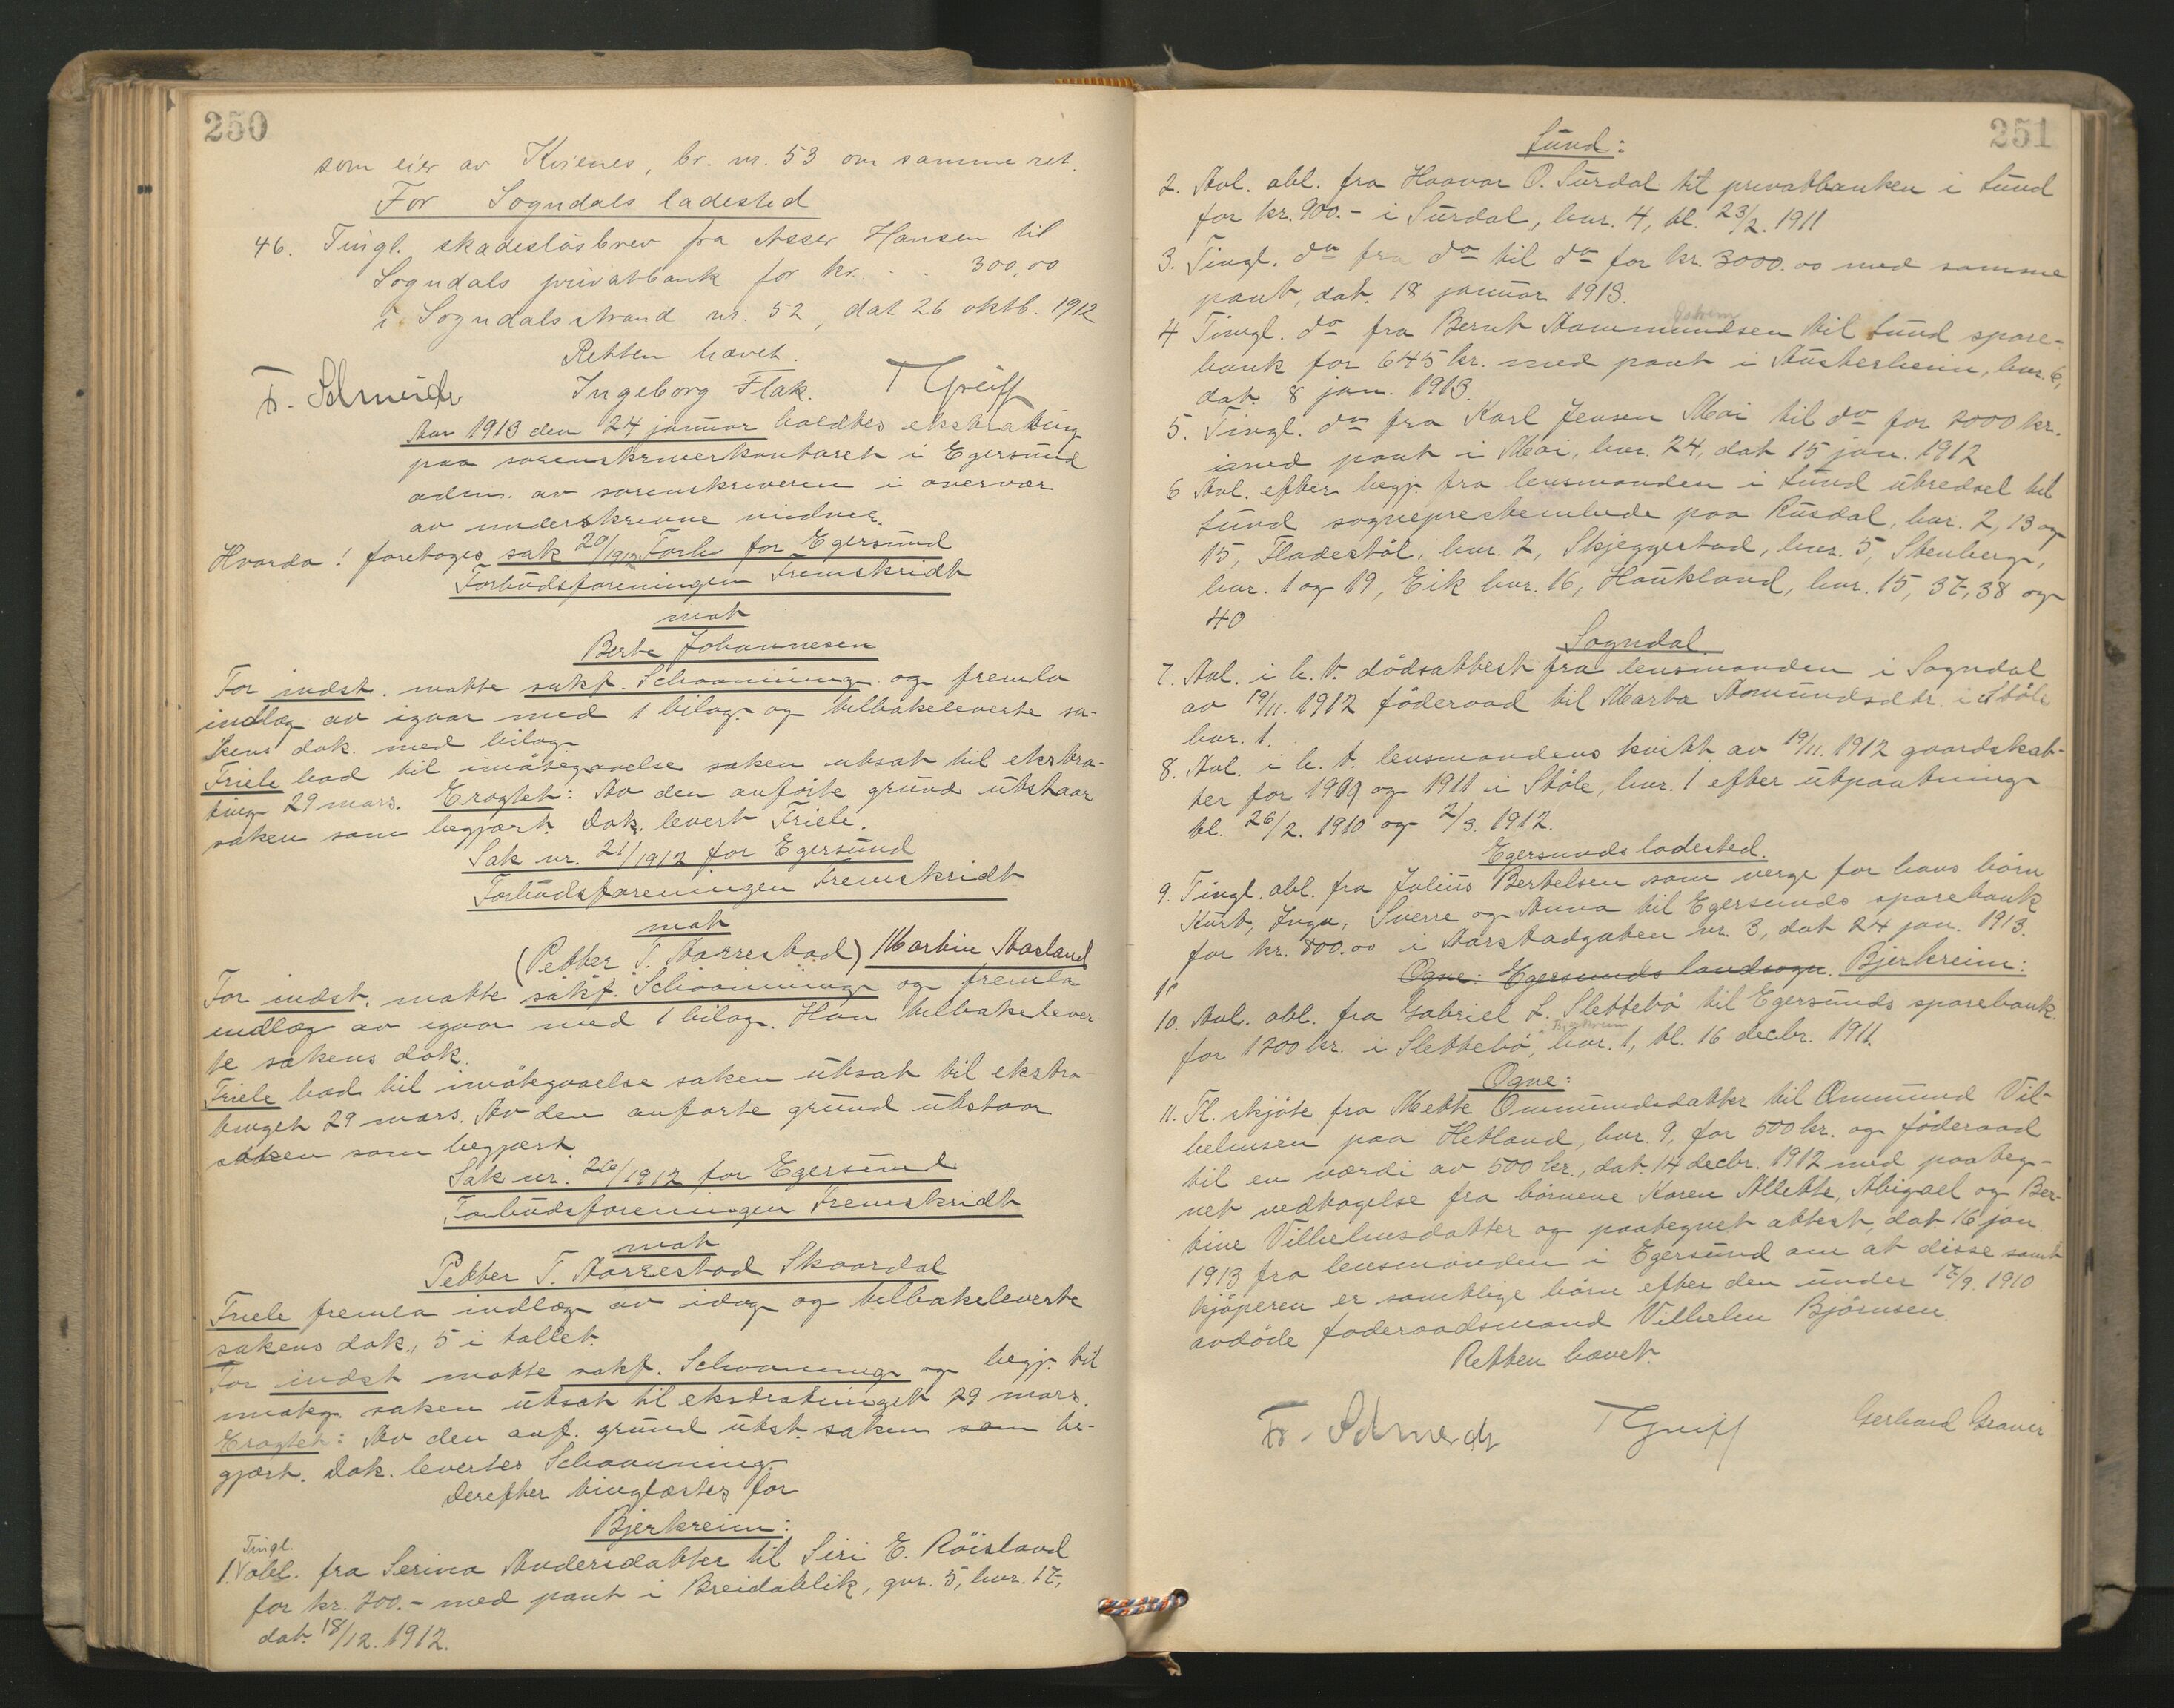 250
som eier av Kvienes, br. nr. 53 om samme ret.
For Sogndals ladested
46. Tingl. skadeslösbrev fra Asser Hansen til
Sogndals privatbank for kr. . . 300,00
i Sogndalsstrand nr. 52, dat 26 oktb. 1912
Retten hævet.
Fr. Schneider Ingeborg Flak. T Greiff
Aar 1913 den 24 januar holdtes ekstrating
paa sorenskriverkontoret i Egersund
adm. av sorenskriveren i overvær
av underskrevne vidner.
Hvorda! foretoges sak 20/1912 Forh for Egersund
Forbudsforeningen Fremskridt
mot
Berte Johannesen
For indst. møtte sakf. Schaanning og fremla
indlæg av igaar med 1 bilag og tilbakeleverte sa-
kens dok. med bilag.
Friele bad til imøtegaaelse saken utsat til ekstra-
ting 29 mars. Eragtet: Av den anførte grund utstaar
saken som begjært. Dok. levert Friele.
Sak nr. 21/1912 for Egersund
Forbudsforeningen Fremskridt
mot
(Petter T. Aarrestad) Martin Aasland
For indst. møtte sakf. Schaanning og fremla
indlæg av igaar med 1 bilag. Han tilbakelever
te sakens dok.
Friele bad til imøtegaaelse saken utsat til ekstra
tinget 29 mars. Av den anførte grund utstaar
saken som begjært.
Sak nr. 26/1912 for Egersund
Forbudsforeningen Fremskridt
mot
Petter T. Aarrestad Skaardal
Friele fremla indlæg av idag og tilbakeleverte
sakens dok., 5 i tallet.
For indst møtte sakf. Schaanning og begj. til
imøteg. saken utsat til ekstratinget 29 mars.
Eragtet: Av den anf. grund utst. saken som be-
gjært. Dok. levertes Schaanning.
Derefter tinglæstes for
Bjerkreim:
Tingl.
1. obl. fra Serina Andersdatter til Siri E. Röisland
for kr. 200.- med pant i Breidablik, gnr. 5, bnr. 17,
dat. 18/12. 1912.
251
Lund:
2. Avl. obl. fra Haavar O. Surdal til privatbanken i Lund
for kr. 900.- i Surdal, bnr. 4, tl. 23/2. 1911
3. Tingl. do fra do til do for kr. 3000.00 med samme
pant, dat. 18 januar 1913.
4 Tingl. do fra Bernt Aammundsen til Lund spare-
bank for 645 kr. med pant i Austerheim, bnr. 6,
dat. 8 jan. 1913.
5. Tingl. do fra Karl Jensen Moi til do for 2000 kr.
med pant i Moi, bnr. 24, dat 15 jan. 1912
6 Avl. efter begj. fra lensmanden i Lund utredsel til
Lund sogneprestembede paa Rusdal, bnr. 2, 13 og
15, Fladestöl, bnr. 2, Skjeggestad, bnr. 5, Stenberg,
bnr. 1 og 19, Eik bnr. 16, Haukland, bnr. 15, 37, 38 og
40
Sogndal.
7. Avl. i h. t. dödsattest fra lensmanden i Sogndal
av 19/11. 1912 föderaad til Marta Aamundsdtr. i Stöle
bnr. 1.
8. Avl. i h. t. lensmandens kvitt. av 19/11. 1912 gaardskat-
ter for 1909 og 1911 i Stöle, bnr. 1 efter utpantning
tl. 26/2. 1910 og 2/3. 1912.
Egersunds ladested.
9. Tingl. obl. fra Julius Bertelsen som verge for hans börn
Kurt, Inga, Sverre og Anna til Egersunds sparebank
for kr. 800.00 i Aarstadgaten nr. 3, dat 24 jan. 1913.
Ogne: Egersunds landsogn. Bjerkreim:
10. Avl. obl. fra Gabriel L. Slettebö til Egersunds sparebank.
for 1200 kr. i Slettebö, bnr. 1, tl. 16 decbr. 1911.
Ogne:
11. Tl. skjöte fra Mette Ommundsdatter til Ommund Vil-
helmsen paa Hetland, bnr. 9, for 500 kr. og föderaad
til en værdi av 500 kr., dat. 14 decbr. 1912 med paateg-
net vedtagelse fra börnene Karen Alette, Abigael og Ber-
tine Vilhelmsdatter og paategnet attest, dat 16 jan.
1913 fra lensmanden i Egersund om at disse samt
kjöperen er samtlige börn efter den under 17/9. 1910
avdöde föderaadsmand Vilhelm Björnsen.
Retten hævet.
Fr. Schneider T Greiff Gerhard Graver